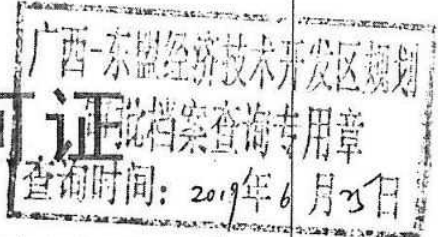 广西-东盟经济技术开发区规划
证
批档案查询专用章
查询时间：2019年6月25日